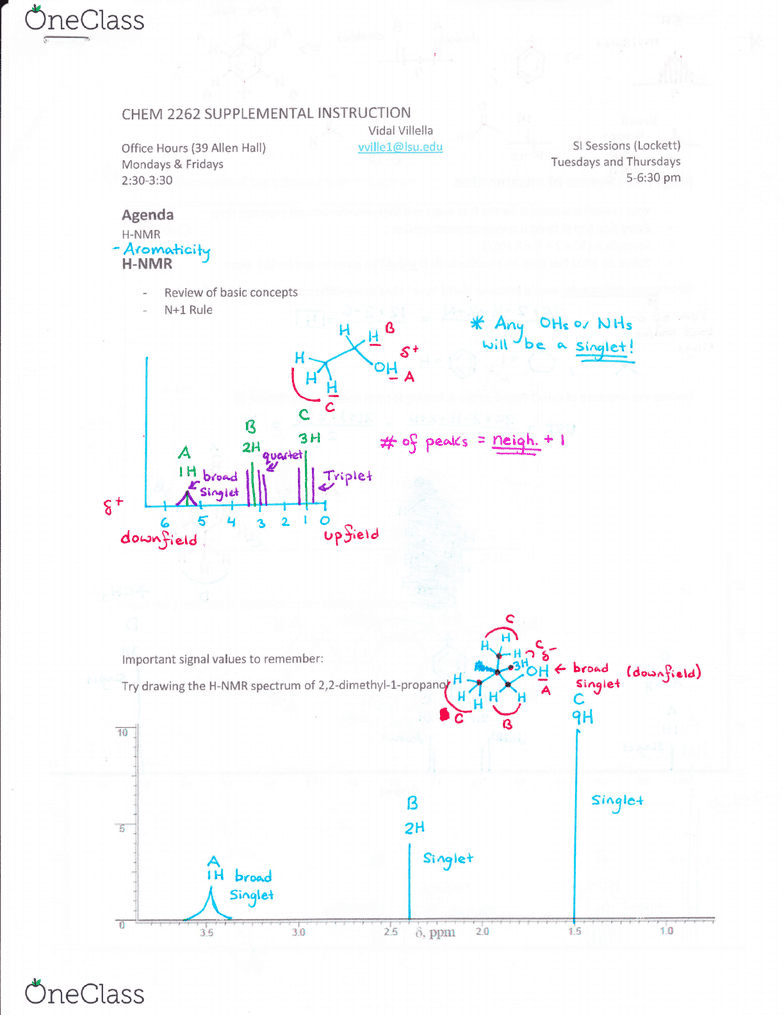 OneClass
CHEM 2262 SUPPLEMENTAL INSTRUCTION
Vidal Villella
Office Hours (39 Allen Hall)
vville1@lsu.edu
SI Sessions (Lockett)
Mondays & Fridays
Tuesdays and Thursdays
2:30-3:30
5-6:30 pm
Agenda
H-NMR
- Aromaticity
H-NMR
- Review of basic concepts
- N+1 Rule
* Any OHs or NHs
will be a singlet!
H H B
H δ+
H OH A
H
C
# of peaks = neigh. + 1
A B C
1H 2H 3H
broad
singlet
quartet
Triplet
δ+
6 5 4 3 2 1 0
downfield upfield
Important signal values to remember:
Try drawing the H-NMR spectrum of 2,2-dimethyl-1-propanol
C
H H H C δ-
3H
OH ← broad (downfield)
singlet
A
H H H H H
C B
C
9H
singlet
B
2H
singlet
A
1H broad
singlet
10
5
0
3.5 3.0 2.5 δ, ppm 2.0 1.5 1.0
OneClass